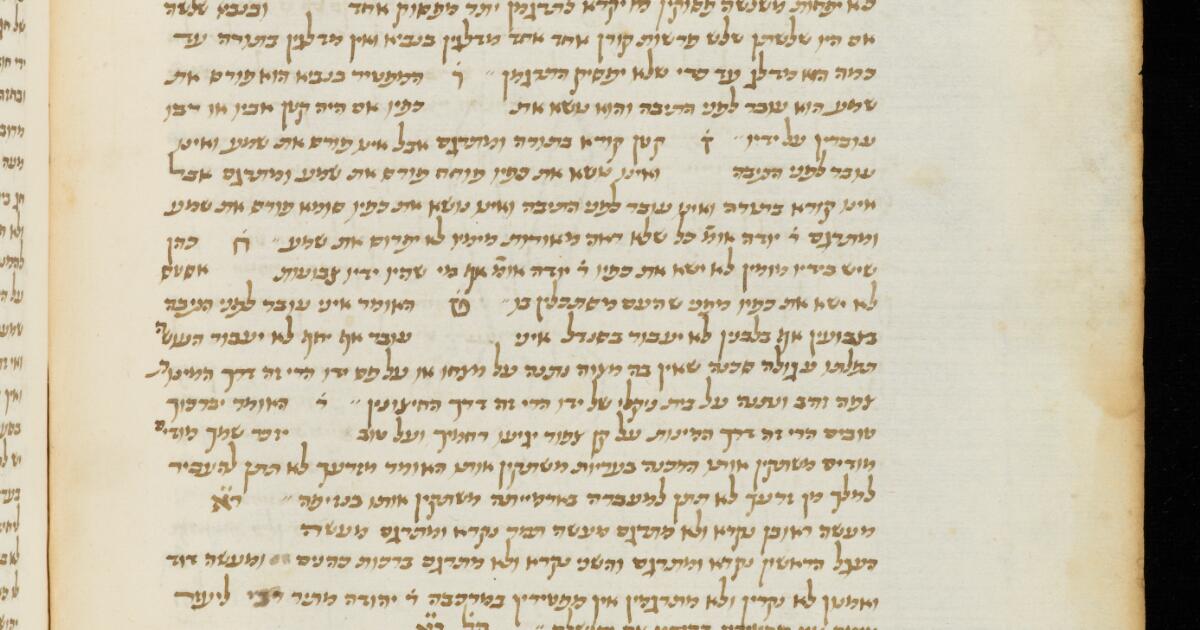 לא יפחות משלשה פסוקין לא יקרא לתרגמן יתר מפסוק אחד ובנביא שלשה
אם היו שלשתן שלש פרשות קורין אחד אחד מדלגין בנביא ואין מדלגין בתורה עד
כמה הוא מדלג עד כדי שלא יפסיק התרגמן ו המפטיר בנביא הוא פורס את
שמע הוא עובר לפני התיבה והוא נושא את כפיו אם היה קטן אביו או רבו
עוברין על ידיו ז קטן קורא בתורה ומתרגם אבל אינו פורס את שמע ואינו
עובר לפני התיבה ואינו נושא את כפיו פוחח פורס את שמע ומתרגם אבל
אינו קורא בתורה ואינו עובר לפני התיבה ואינו נושא את כפיו סומא פורס את שמע
ומתרגם ר יודה אומ כל שלא ראה מאורות מימיו לא יפרוס את שמע ח כהן
שיש בידיו מומין לא ישא את כפיו ר יודה אומ אף מי שהיו ידיו צבועות אסטס
לא ישא את כפיו מפני שהעם מסתכלין בו ט האומר איני עובר לפני התיבה
בצבועין אף בלבנין לא יעבור בסנדל איני עובר אף יחף לא יעבור העושה
תפלתו עגולה סכנה שאין בה מצוה נתנה על מצחו או על פס ידו הרי זה דרך המינות
צפה זהב ונתנה על בית נוקלו של ידו הרי זה דרך החיצונין י האומר יברכוך
טובים הרי זה דרך המינות על קן צפור יגיעו רחמיך ועל טוב יזכר שמך מודים
מודים משתקין אותו המכנה בעריות משתקין אותו האומר מזרעך לא תתן להעביר
למלך מן זרעך לא תתן למעברה בארמייתה משתקין אותו בנזיפה יא
מעשה ראובן נקרא ולא מתרגם מעשה תמר נקרא ומתרגם מעשה
העגל הראשון נקרא ומתרגם והשני נקרא ולא מתרגם ברכות כהנים ומעשה דוד
ואמנון לא נקרין ולא מתרגמין אין מפטירין במרכבה ר יהודה מתיר רבי ליעזר